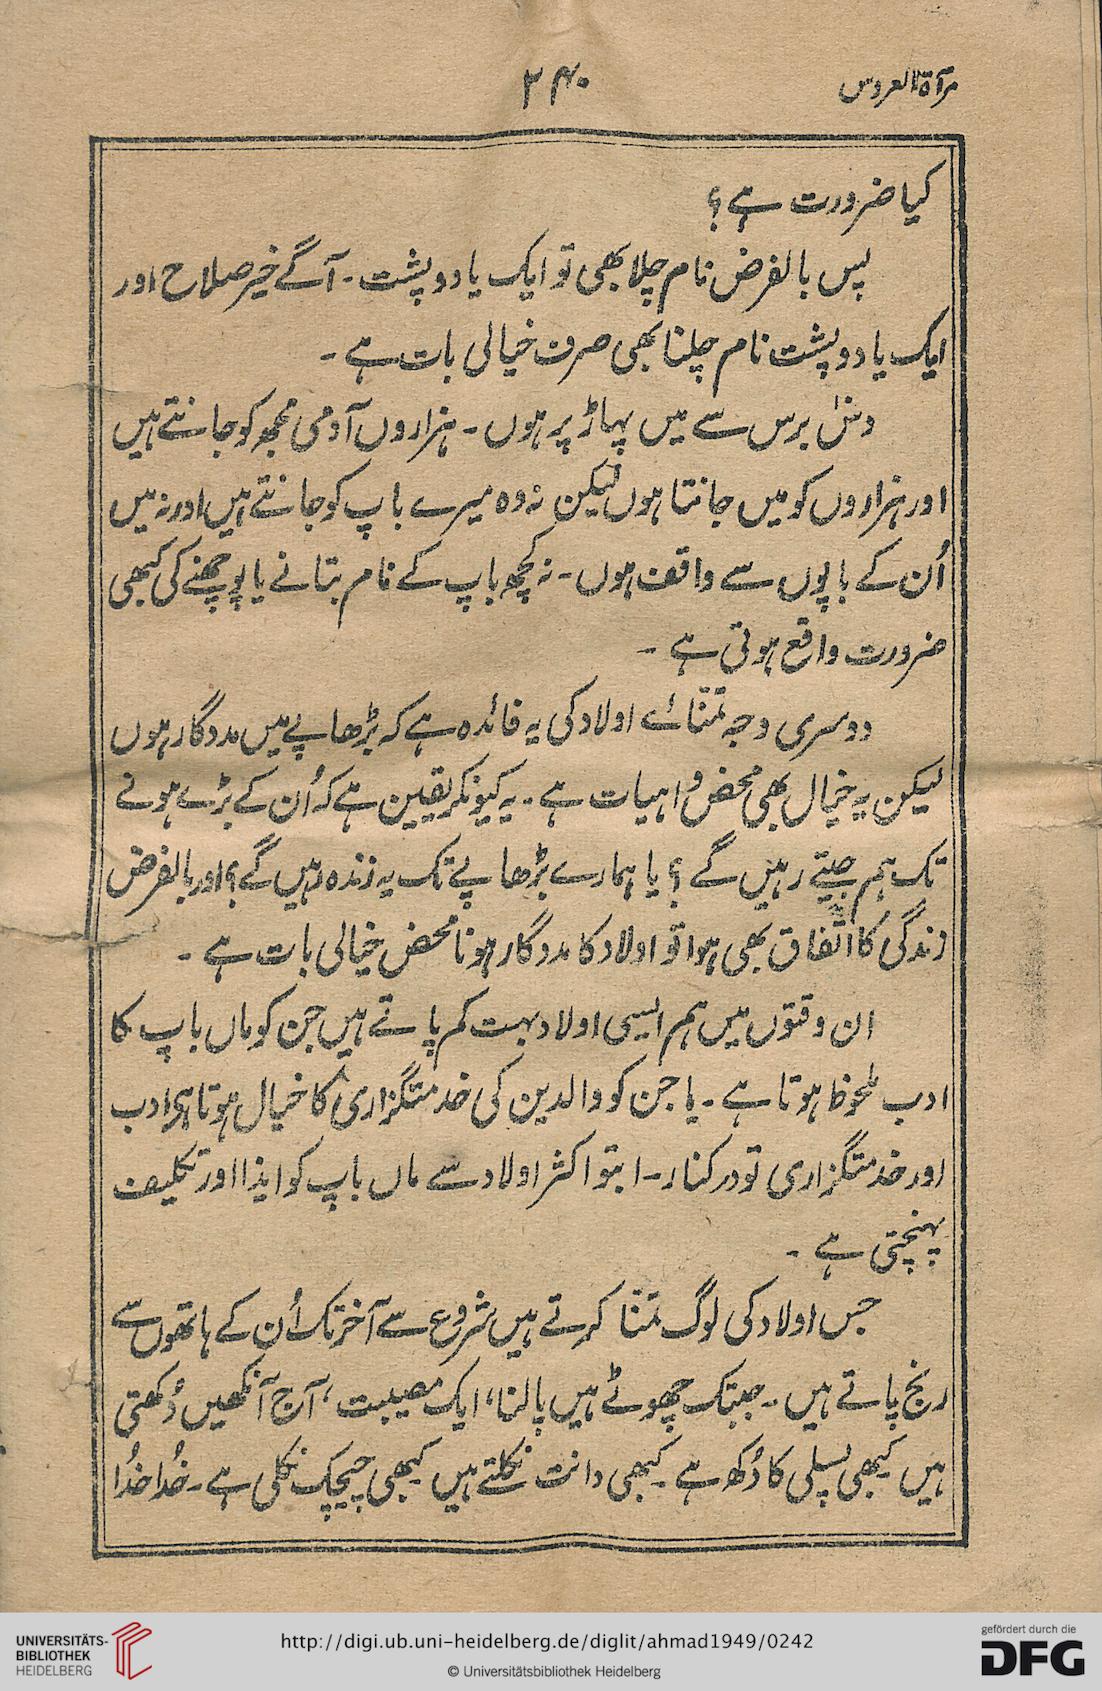 مرآۃ العروس
۲۴۰
کیا ضرورت ہے؟
پس بالفرض نام چلا بھی تو ایک یا دو پشت۔ آگے خیر صلاح اور
ایک یا دو پشت نام چلنا بھی صرف خیالی بات ہے۔
دس برس سے میں پہاڑ پر ہوں۔ ہزاروں آدمی مجھ کو جانتے ہیں
اور ہزاروں کو میں جانتا ہوں لیکن نہ وہ میرے باپ کو جانتے ہیں اور نہ میں
اُن کے باپوں سے واقف ہوں۔ نہ کچھ باپ کے نام بتانے یا پوچھنے کی کبھی
ضرورت واقع ہوتی ہے۔
دوسری وجہ تمنّائے اولاد کی یہ فائدہ ہے کہ بڑھاپے میں مددگار ہوں
لیکن یہ خیال بھی محض واہیات ہے۔ یہ کیونکر یقین ہے کہ اُن کے بڑے ہونے
تک ہم جیتے رہیں گے؟ یا ہمارے بڑھاپے تک یہ زندہ رہیں گے؟ اور بالفرض
زندگی کا اتّفاق بھی ہوا تو اولاد کا مددگار ہونا محض خیالی بات ہے۔
ان وقتوں میں ہم ایسی اولاد بہت کم پاتے ہیں جن کو ماں باپ کا
ادب ملحوظ ہوتا ہے۔ یا جن کو والدین کی خدمتگزاری کا خیال ہوتا ہی ادب
اور خدمتگزاری تو درکنار۔ ابتو اکثر اولاد سے ماں باپ کو ایذا اور تکلیف
پہنچتی ہے۔
جس اولاد کی لوگ تمنّا کرتے ہیں شروع سے آخر تک اُن کے ہاتھوں سے
رنج پاتے ہیں۔ جبتک چھوٹے ہیں پالنا، ایک مصیبت، آج آنکھیں دُکھتی
ہیں کبھی پسلی کا دُکھ ہے۔ کبھی دانت نکلتے ہیں کبھی چیچک نکلی ہے۔ خُدا خُدا
UNIVERSITÄTS-
BIBLIOTHEK
HEIDELBERG
http://digi.ub.uni-heidelberg.de/diglit/ahmad1949/0242
© Universitätsbibliothek Heidelberg
gefördert durch die
DFG